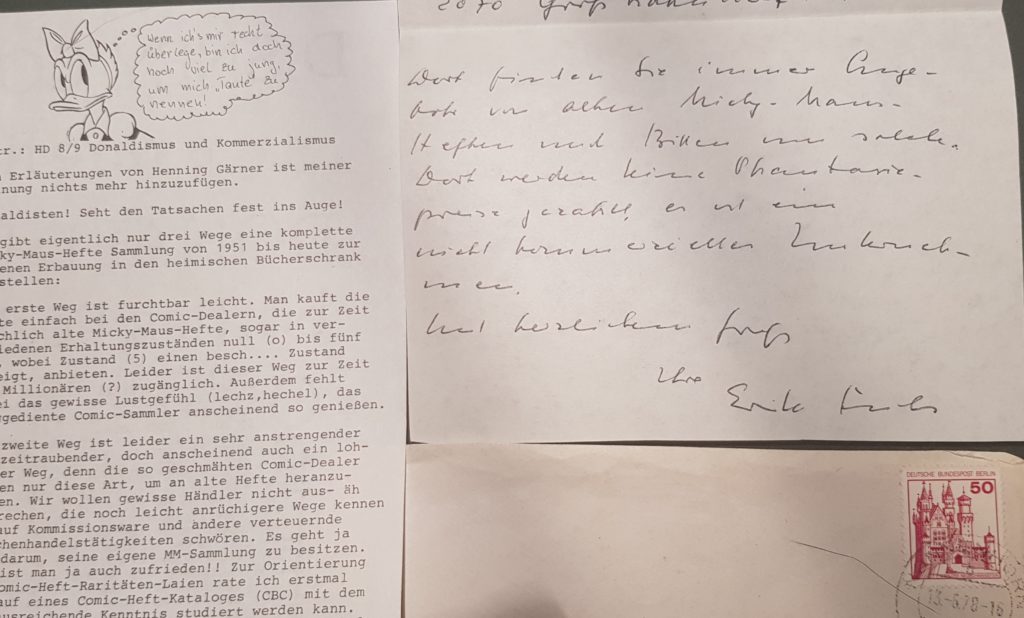 Wenn ich's mir recht
überlege, bin ich doch
noch viel zu jung,
um mich „Tante" zu
nennen!
tr.: HD 8/9 Donaldismus und Kommerzialismus
Erläuterungen von Henning Gärner ist meiner
nung nichts mehr hinzuzufügen.
aldisten! Seht den Tatsachen fest ins Auge!
gibt eigentlich nur drei Wege eine komplette
ky-Maus-Hefte Sammlung von 1951 bis heute zur
enen Erbauung in den heimischen Bücherschrank
stellen:
erste Weg ist furchtbar leicht. Man kauft die
te einfach bei den Comic-Dealern, die zur Zeit
chlich alte Micky-Maus-Hefte, sogar in ver-
iedenen Erhaltungszuständen null (o) bis fünf
, wobei Zustand (5) einen besch.... Zustand
eigt, anbieten. Leider ist dieser Weg zur Zeit
Millionären (?) zugänglich. Außerdem fehlt
ei das gewisse Lustgefühl (lechz,hechel), das
gediente Comic-Sammler anscheinend so genießen.
zweite Weg ist leider ein sehr anstrengender
zeitraubender, doch anscheinend auch ein loh-
er Weg, denn die so geschmähten Comic-Dealer
en nur diese Art, um an alte Hefte heranzu-
en. Wir wollen gewisse Händler nicht aus- äh
rechen, die noch leicht anrüchigere Wege kennen
auf Kommissionsware und andere verteuernde
chenhandelstätigkeiten schwören. Es geht ja
darum, seine eigene MM-Sammlung zu besitzen.
ist man ja auch zufrieden!! Zur Orientierung
omic-Heft-Raritäten-Laien rate ich erstmal
auf eines Comic-Heft-Kataloges (CBC) mit dem
ausreichende Kenntnis studiert werden kann.
2070
Dort finden Sie immer Ange-
bote von alten Micky-Maus-
Heften und Bitten um solche.
Dort werden keine Phantasie-
preise gezahlt, es ist ein
nicht kommerzielles Unterneh-
men.
Mit herzlichem Gruß
Ihre
Erika Fuchs
DEUTSCHE BUNDESPOST BERLIN
50
13.-6.78-16